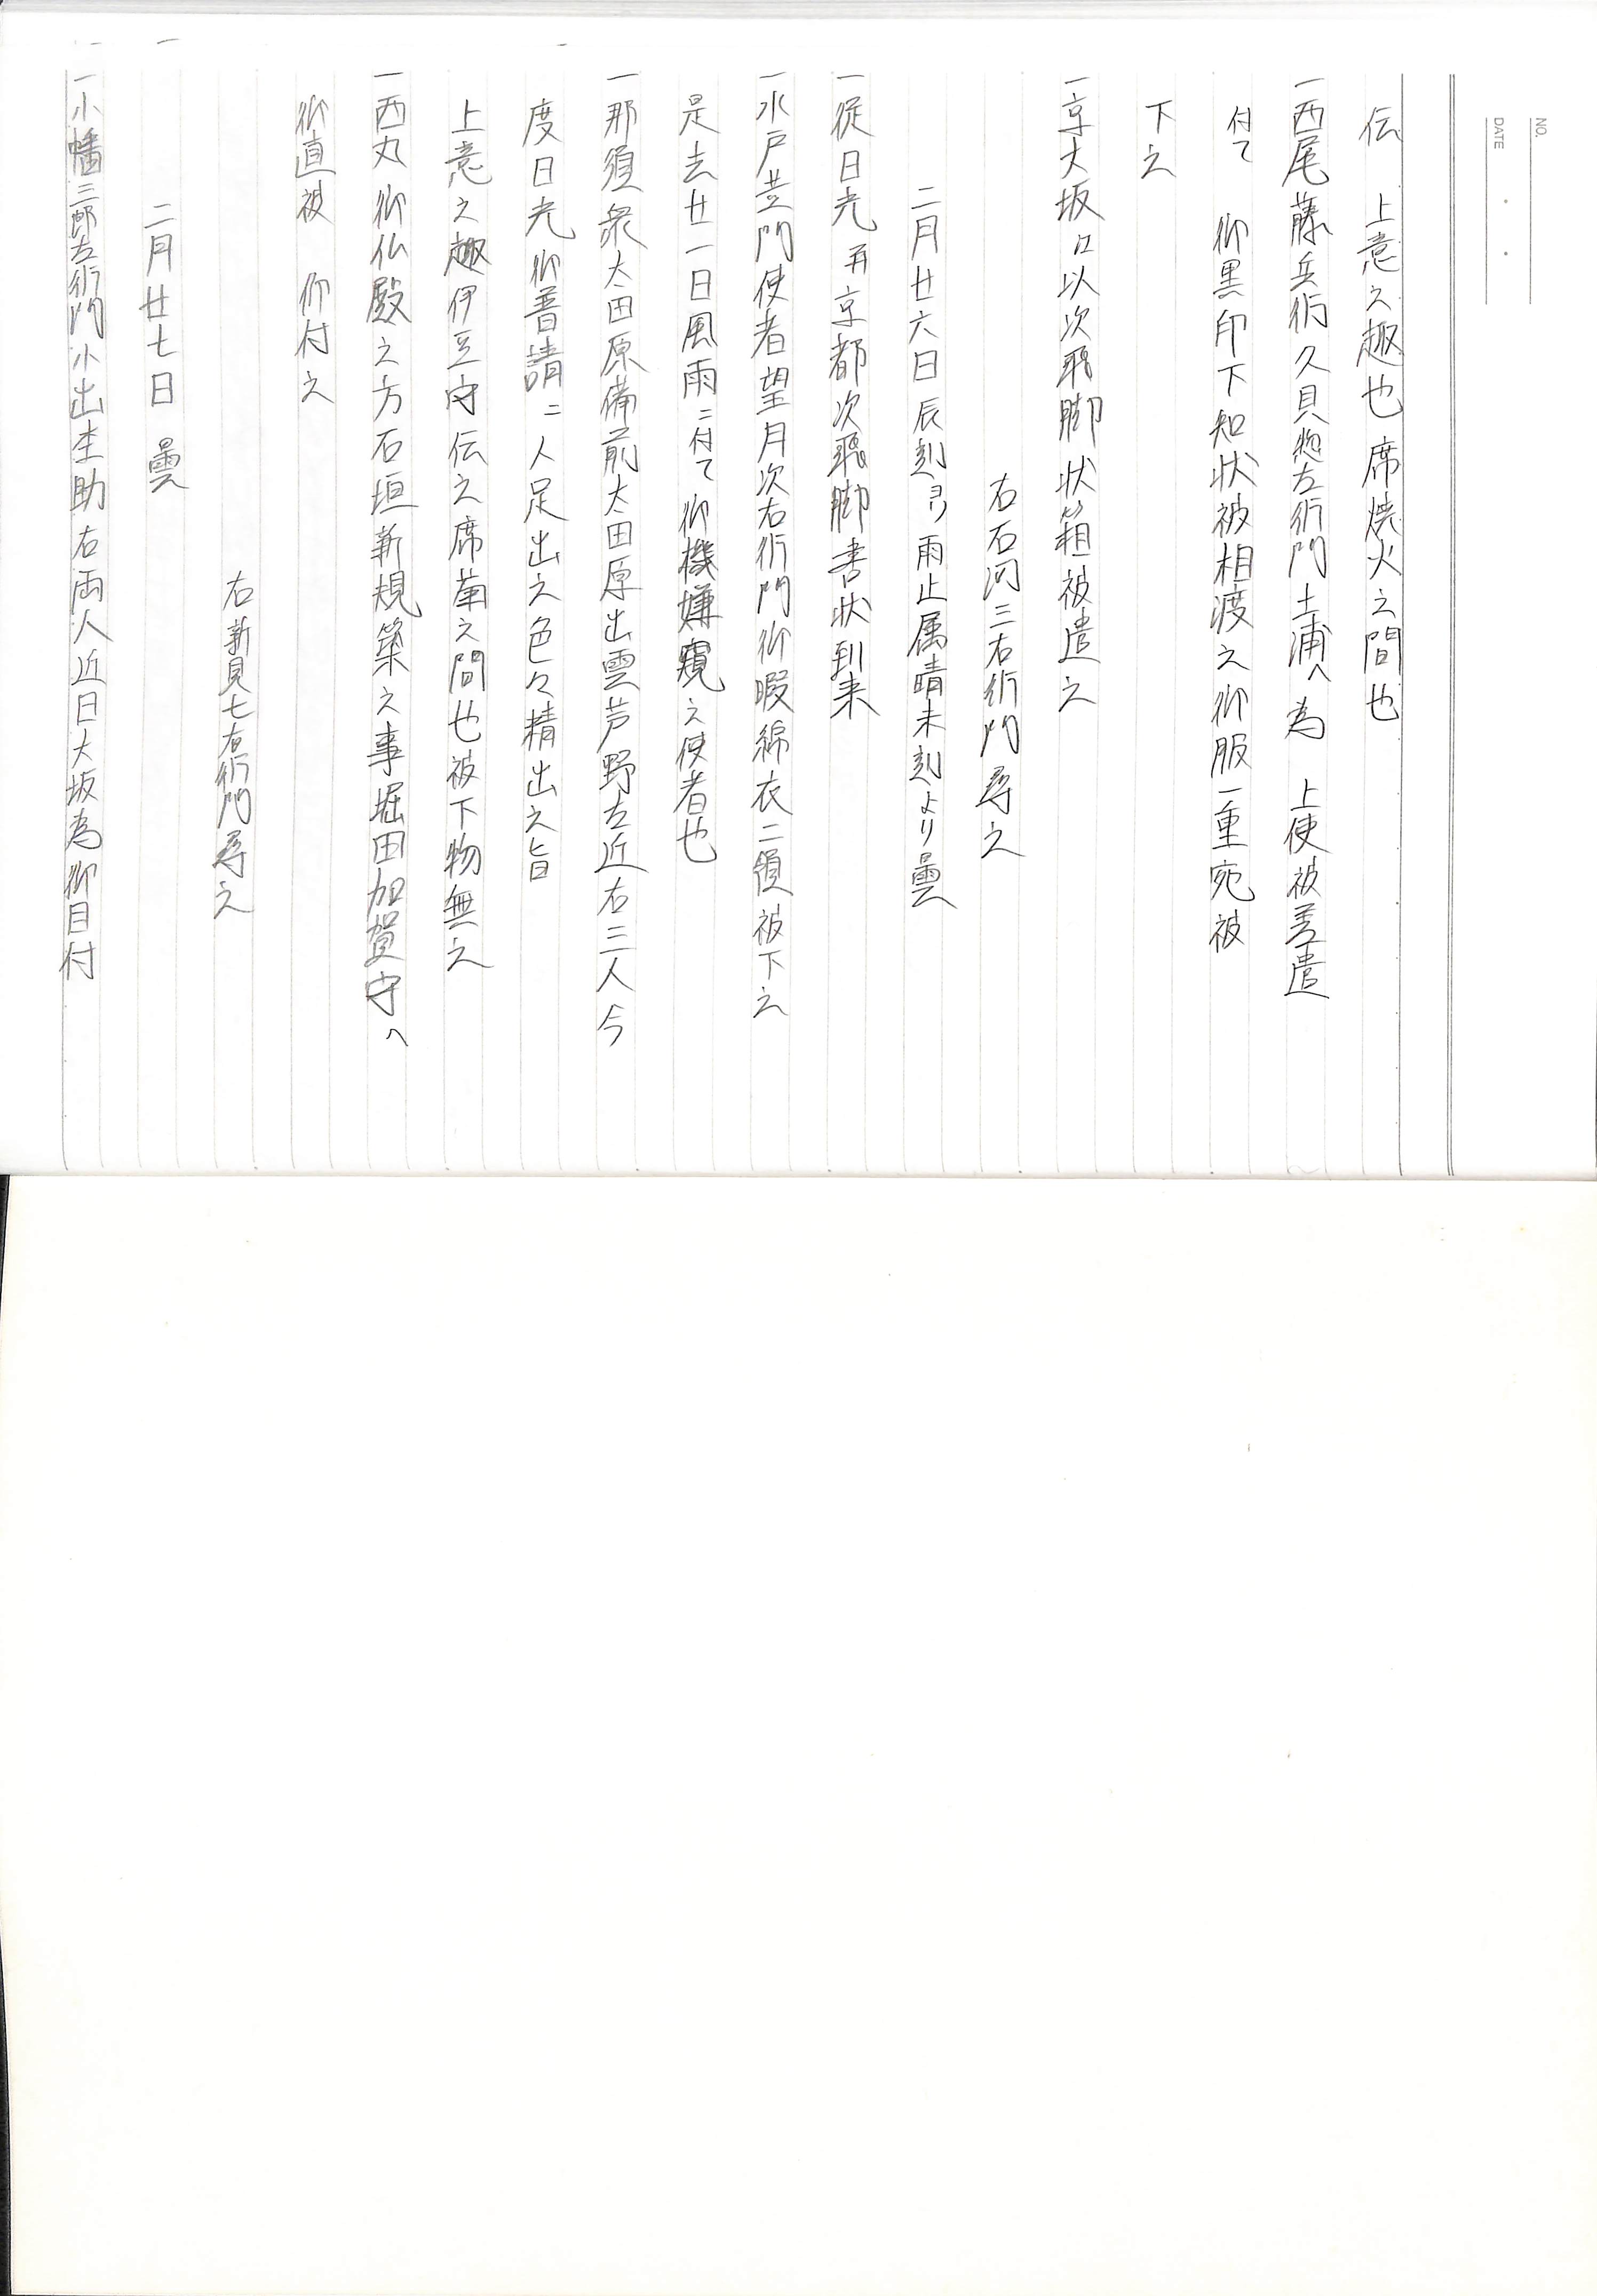 NO.
DATE
伝 上意之趣也席焼火之間也
一西尾藤兵衛久貝惣左衛門土浦へ為 上使被差遣
付て 御黒印下知状被相渡之御服一重宛被
下之
一京大坂江以次飛脚状箱被遣之
右石河三右衛門尋之
二月廿六日辰刻ヨリ雨止属晴未刻より曇
一従日光再京都次飛脚書状到来
一水戸黄門使者望月次右衛門御暇綿衣二領被下之
是去廿一日風雨ニ付て御機嫌窺之使者也
一那須衆大田原備前大田原出雲芦野左近右三人今
度日光御普請ニ人足出之色々精出之旨
上意之趣伊豆守伝之席菊之間也被下物無之
一西丸御仏殿之方石垣新規築之事堀田加賀守へ
御直被 仰付之
右新見七右衛門尋之
二月廿七日 曇
一小幡三郎左衛門小出杢助右両人近日大坂為御目付